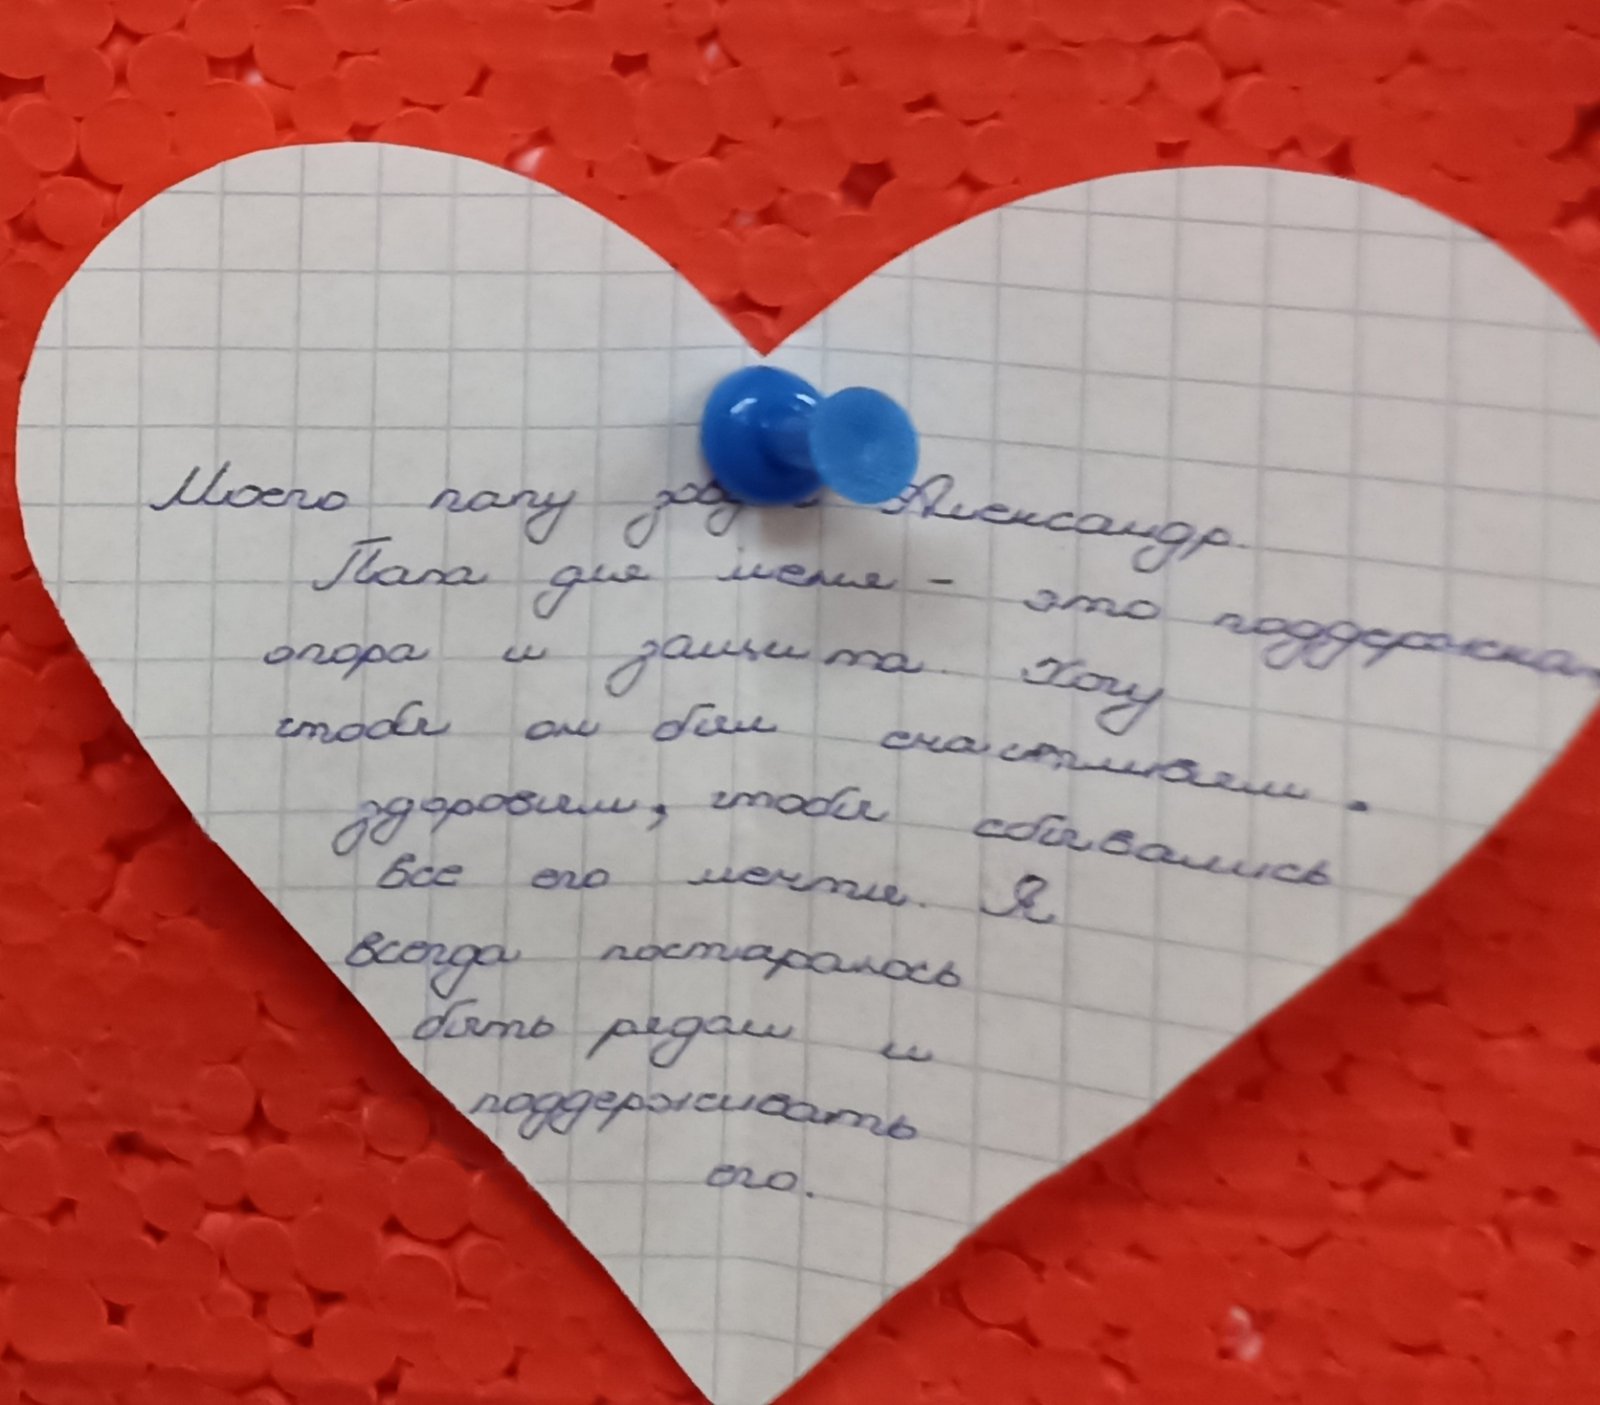 Моего папу зовут Александр.
Папа для меня - это поддержка,
опора и защита. Хочу
чтобы он был счастливым,
здоровым, чтобы сбывались
все его мечты. Я
всегда постараюсь
быть рядом и
поддерживать
его.